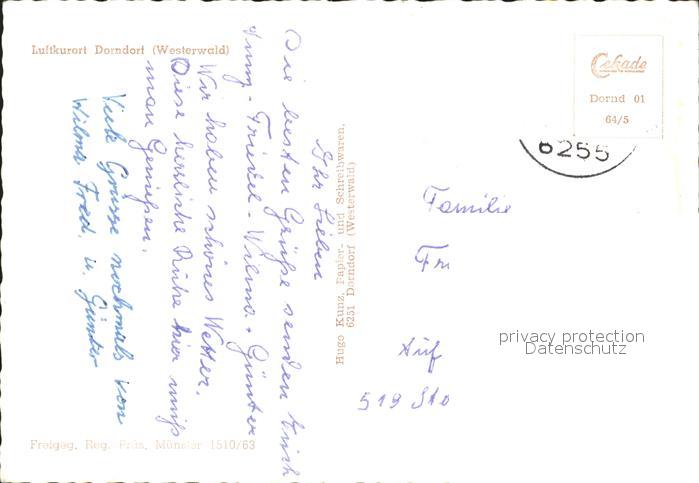 Luftkurort Dorndorf (Westerwald)
Ihr Lieben
Die besten Grüße senden Euch
Anny - Friedel - Wilma + Günter
Wir haben schönes Wetter.
Diese herrliche Ruhe hier muß
man Genießen.
Viele Grüsse nochmals von
Wilma Fred. u. Günter
Hugo Kunz, Papier- und Schreibwaren,
6251 Dorndorf (Westerwald)
Cekade
Dornd 01
64/5
6255
Familie
Fr
Auf
519 Sto
privacy protection
Datenschutz
Freigeg. Reg. Präs. Münster 1510/63